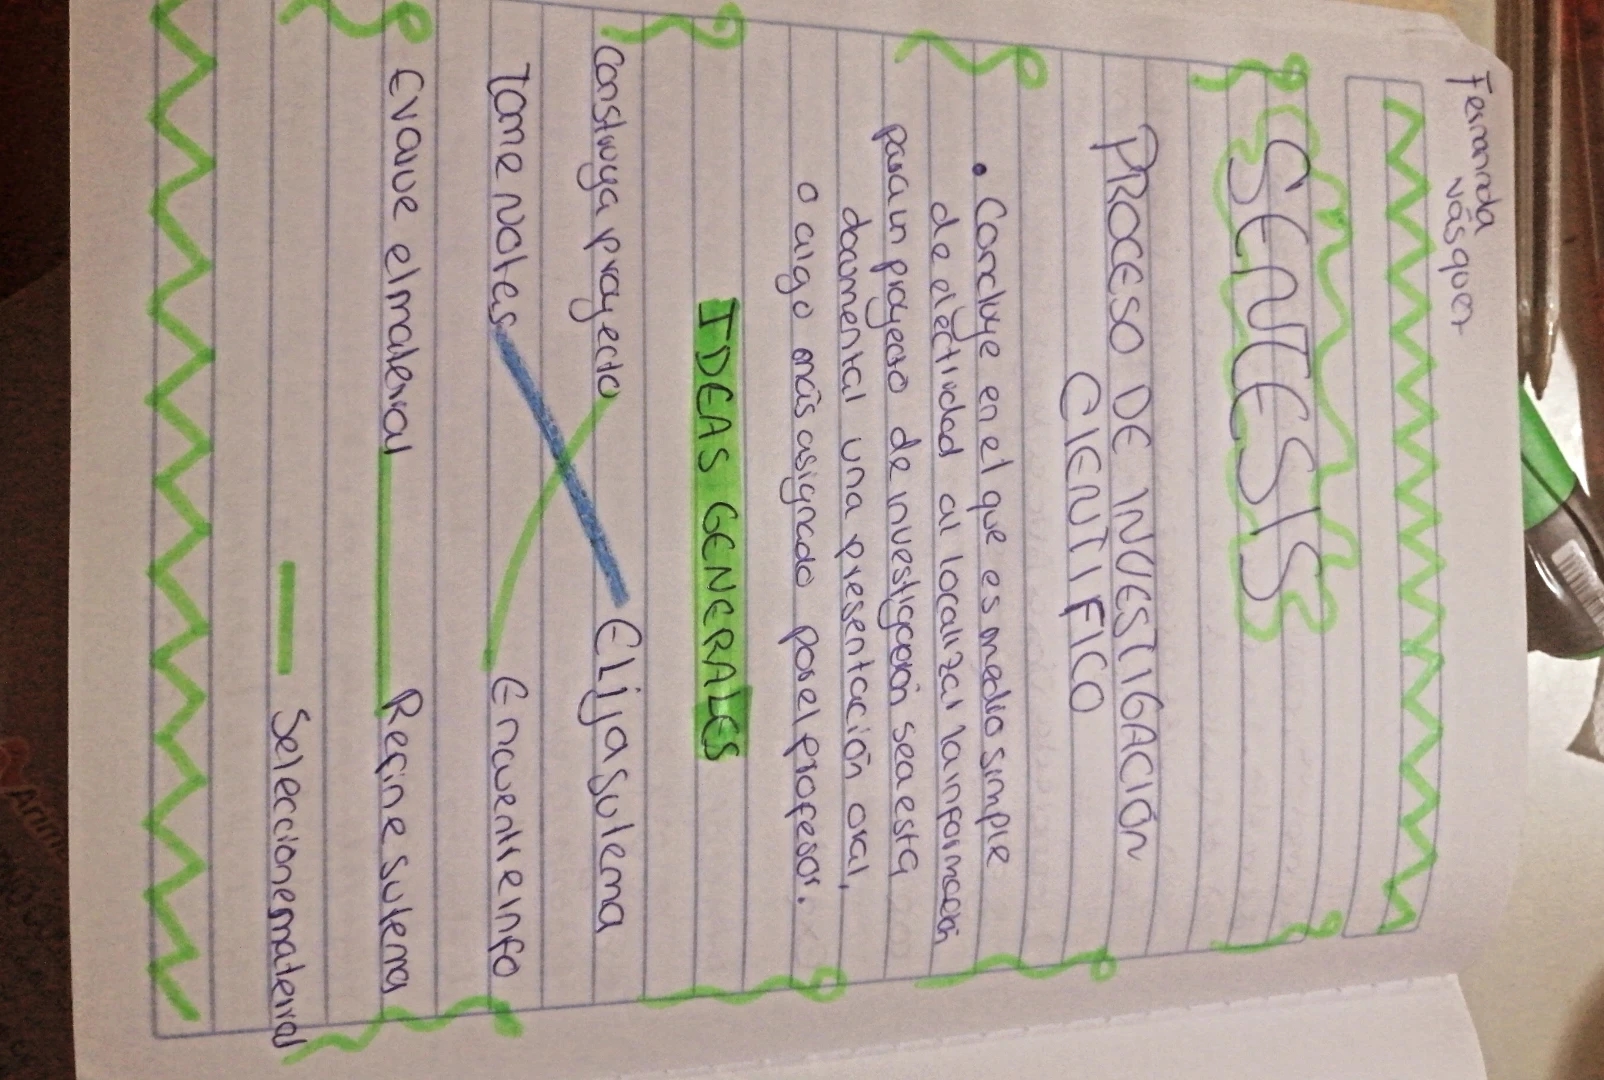 Fernanda
vásquez
SINTESIS
PROCESO DE INVESTIGACIÓN
CIENTIFICO
• Concluye en el que es medio simple
de efectividad al localizar la información
para un proyecto de investigación sea esta
documental una presentación oral,
o algo más asignado por el profesor.
IDEAS GENERALES
Construya proyecto Elija su tema
Tome notas Encuentre info
Evalue el material Refine su tema
Seleccione material